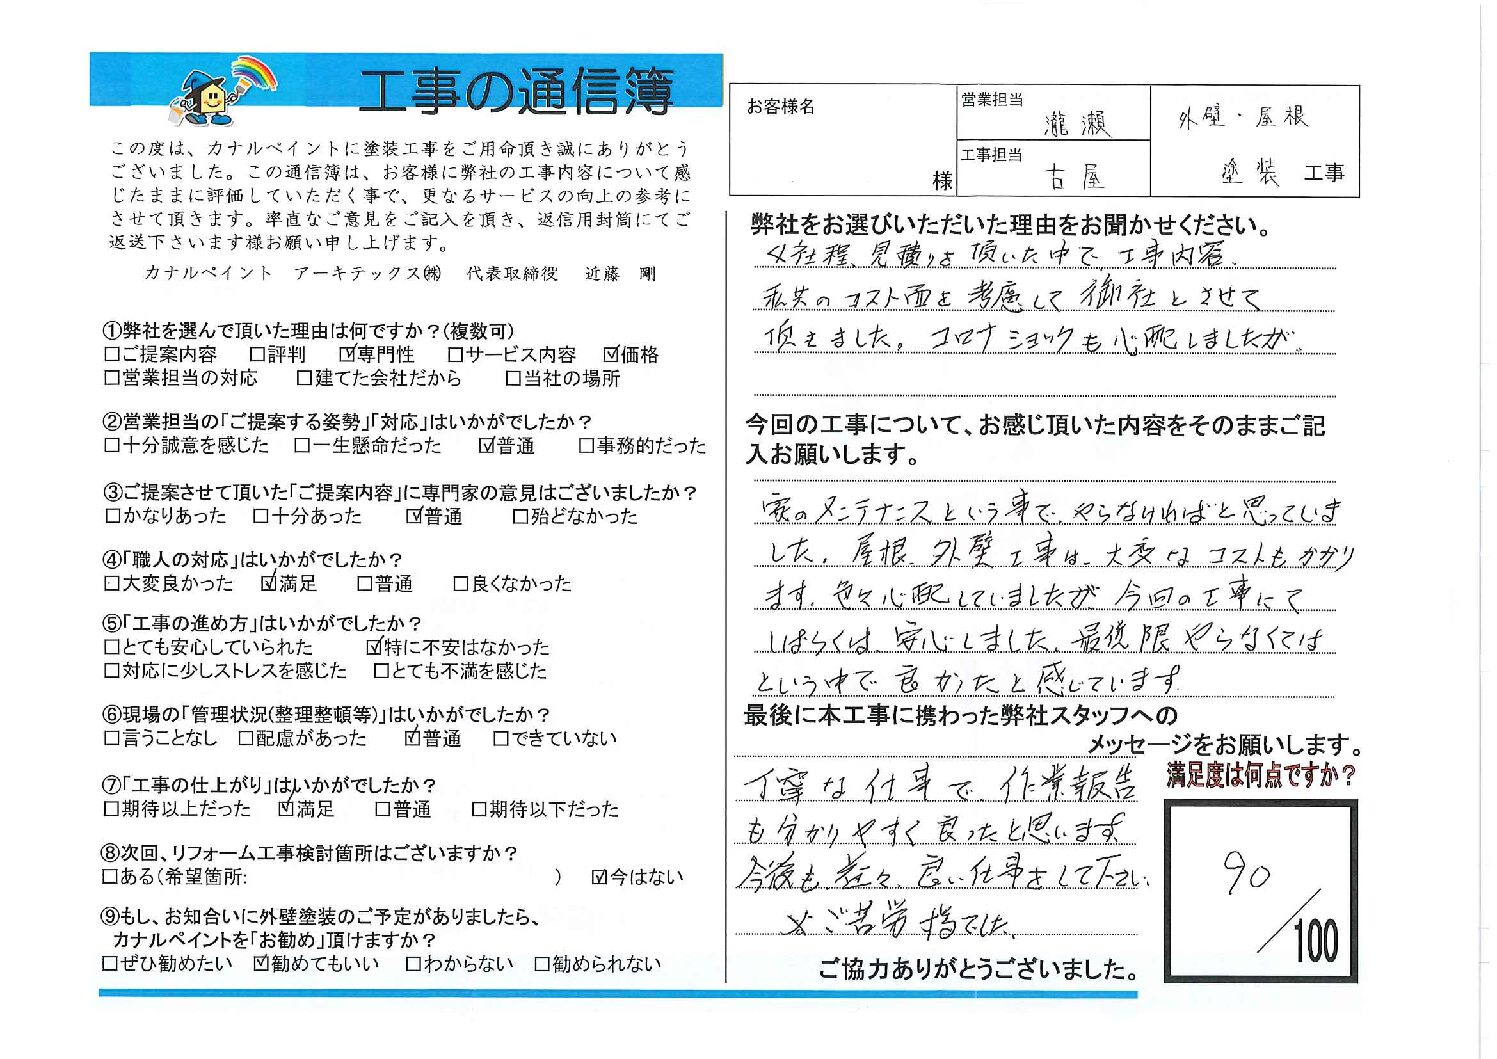 工事の通信簿
この度は、カナルペイントに塗装工事をご用命頂き誠にありがとう
ございました。この通信簿は、お客様に弊社の工事内容について感
じたままに評価していただく事で、更なるサービスの向上の参考に
させて頂きます。率直なご意見をご記入を頂き、返信用封筒にてご
返送下さいます様お願い申し上げます。
カナルペイント アーキテックス㈱ 代表取締役 近藤 剛
①弊社を選んで頂いた理由は何ですか？(複数可)
□ご提案内容 □評判 ☑専門性 □サービス内容 ☑価格
□営業担当の対応 □建てた会社だから □当社の場所
②営業担当の｢ご提案する姿勢｣｢対応｣はいかがでしたか？
□十分誠意を感じた □一生懸命だった ☑普通 □事務的だった
③ご提案させて頂いた｢ご提案内容｣に専門家の意見はございましたか？
□かなりあった □十分あった ☑普通 □殆どなかった
④｢職人の対応｣はいかがでしたか？
□大変良かった ☑満足 □普通 □良くなかった
⑤｢工事の進め方｣はいかがでしたか？
□とても安心していられた ☑特に不安はなかった
□対応に少しストレスを感じた □とても不満を感じた
⑥現場の｢管理状況(整理整頓等)｣はいかがでしたか？
□言うことなし □配慮があった ☑普通 □できていない
⑦｢工事の仕上がり｣はいかがでしたか？
□期待以上だった ☑満足 □普通 □期待以下だった
⑧次回、リフォーム工事検討箇所はございますか？
□ある(希望箇所: ) ☑今はない
⑨もし、お知合いに外壁塗装のご予定がありましたら、
カナルペイントを｢お勧め｣頂けますか？
□ぜひ勧めたい ☑勧めてもいい □わからない □勧められない
お客様名
様
営業担当
瀧瀬
工事担当
古屋
外壁・屋根
塗装 工事
弊社をお選びいただいた理由をお聞かせください。
4社程、見積りを頂いた中で、工事内容、
私共のコスト面を考慮して御社とさせて
頂きました。コロナショックも心配しましたが。
今回の工事について、お感じ頂いた内容をそのままご記
入お願いします。
家のメンテナンスという事で、やらなければと思っていま
した。屋根、外壁工事は、大変なコストもかかり
ます。色々心配していましたが今回の工事にて
しばらくは、安心しました。最低限やらなくては
という中で良かったと感じています
最後に本工事に携わった弊社スタッフへの
メッセージをお願いします。
丁寧な仕事で、作業報告
も分かりやすく良ったと思います。
今後も、益々、良い仕事をして下さい
ご苦労様でした。
ご協力ありがとうございました。
満足度は何点ですか？
90
／100